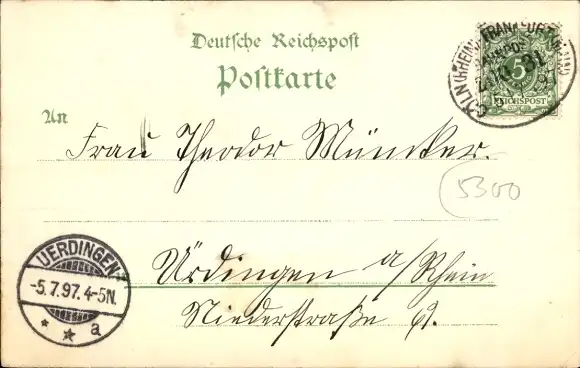 Deutsche Reichspost
Postkarte
CÖLN (RHEIN) FRANKFURT (MAIN)
BAHNPOST
ZUG 31
5
REICHSPOST
An
Frau Theodor Münker.
5300
Ürdingen a/Rhein
Niederstraße
UERDINGEN
-5.7.97. 4-5N.
* * a